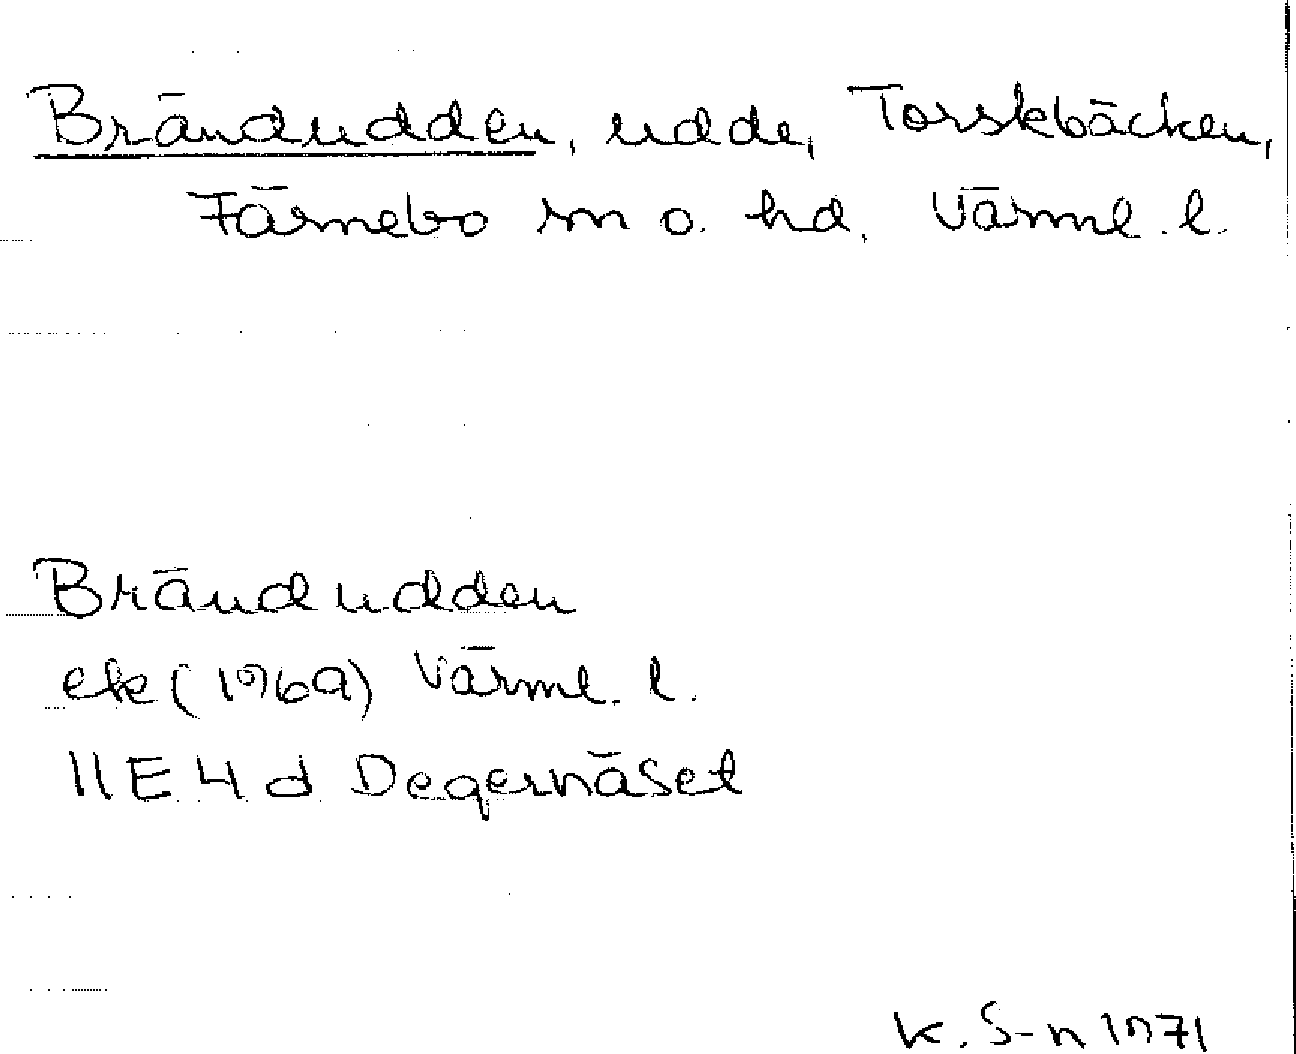 Brändudden, udde, Torskbäcken,
Färnebo sn o. hd. Värml. l.
Brändudden
ek (1969) Värml. l.
11E 4 d Degernäset
K. S-n 1971